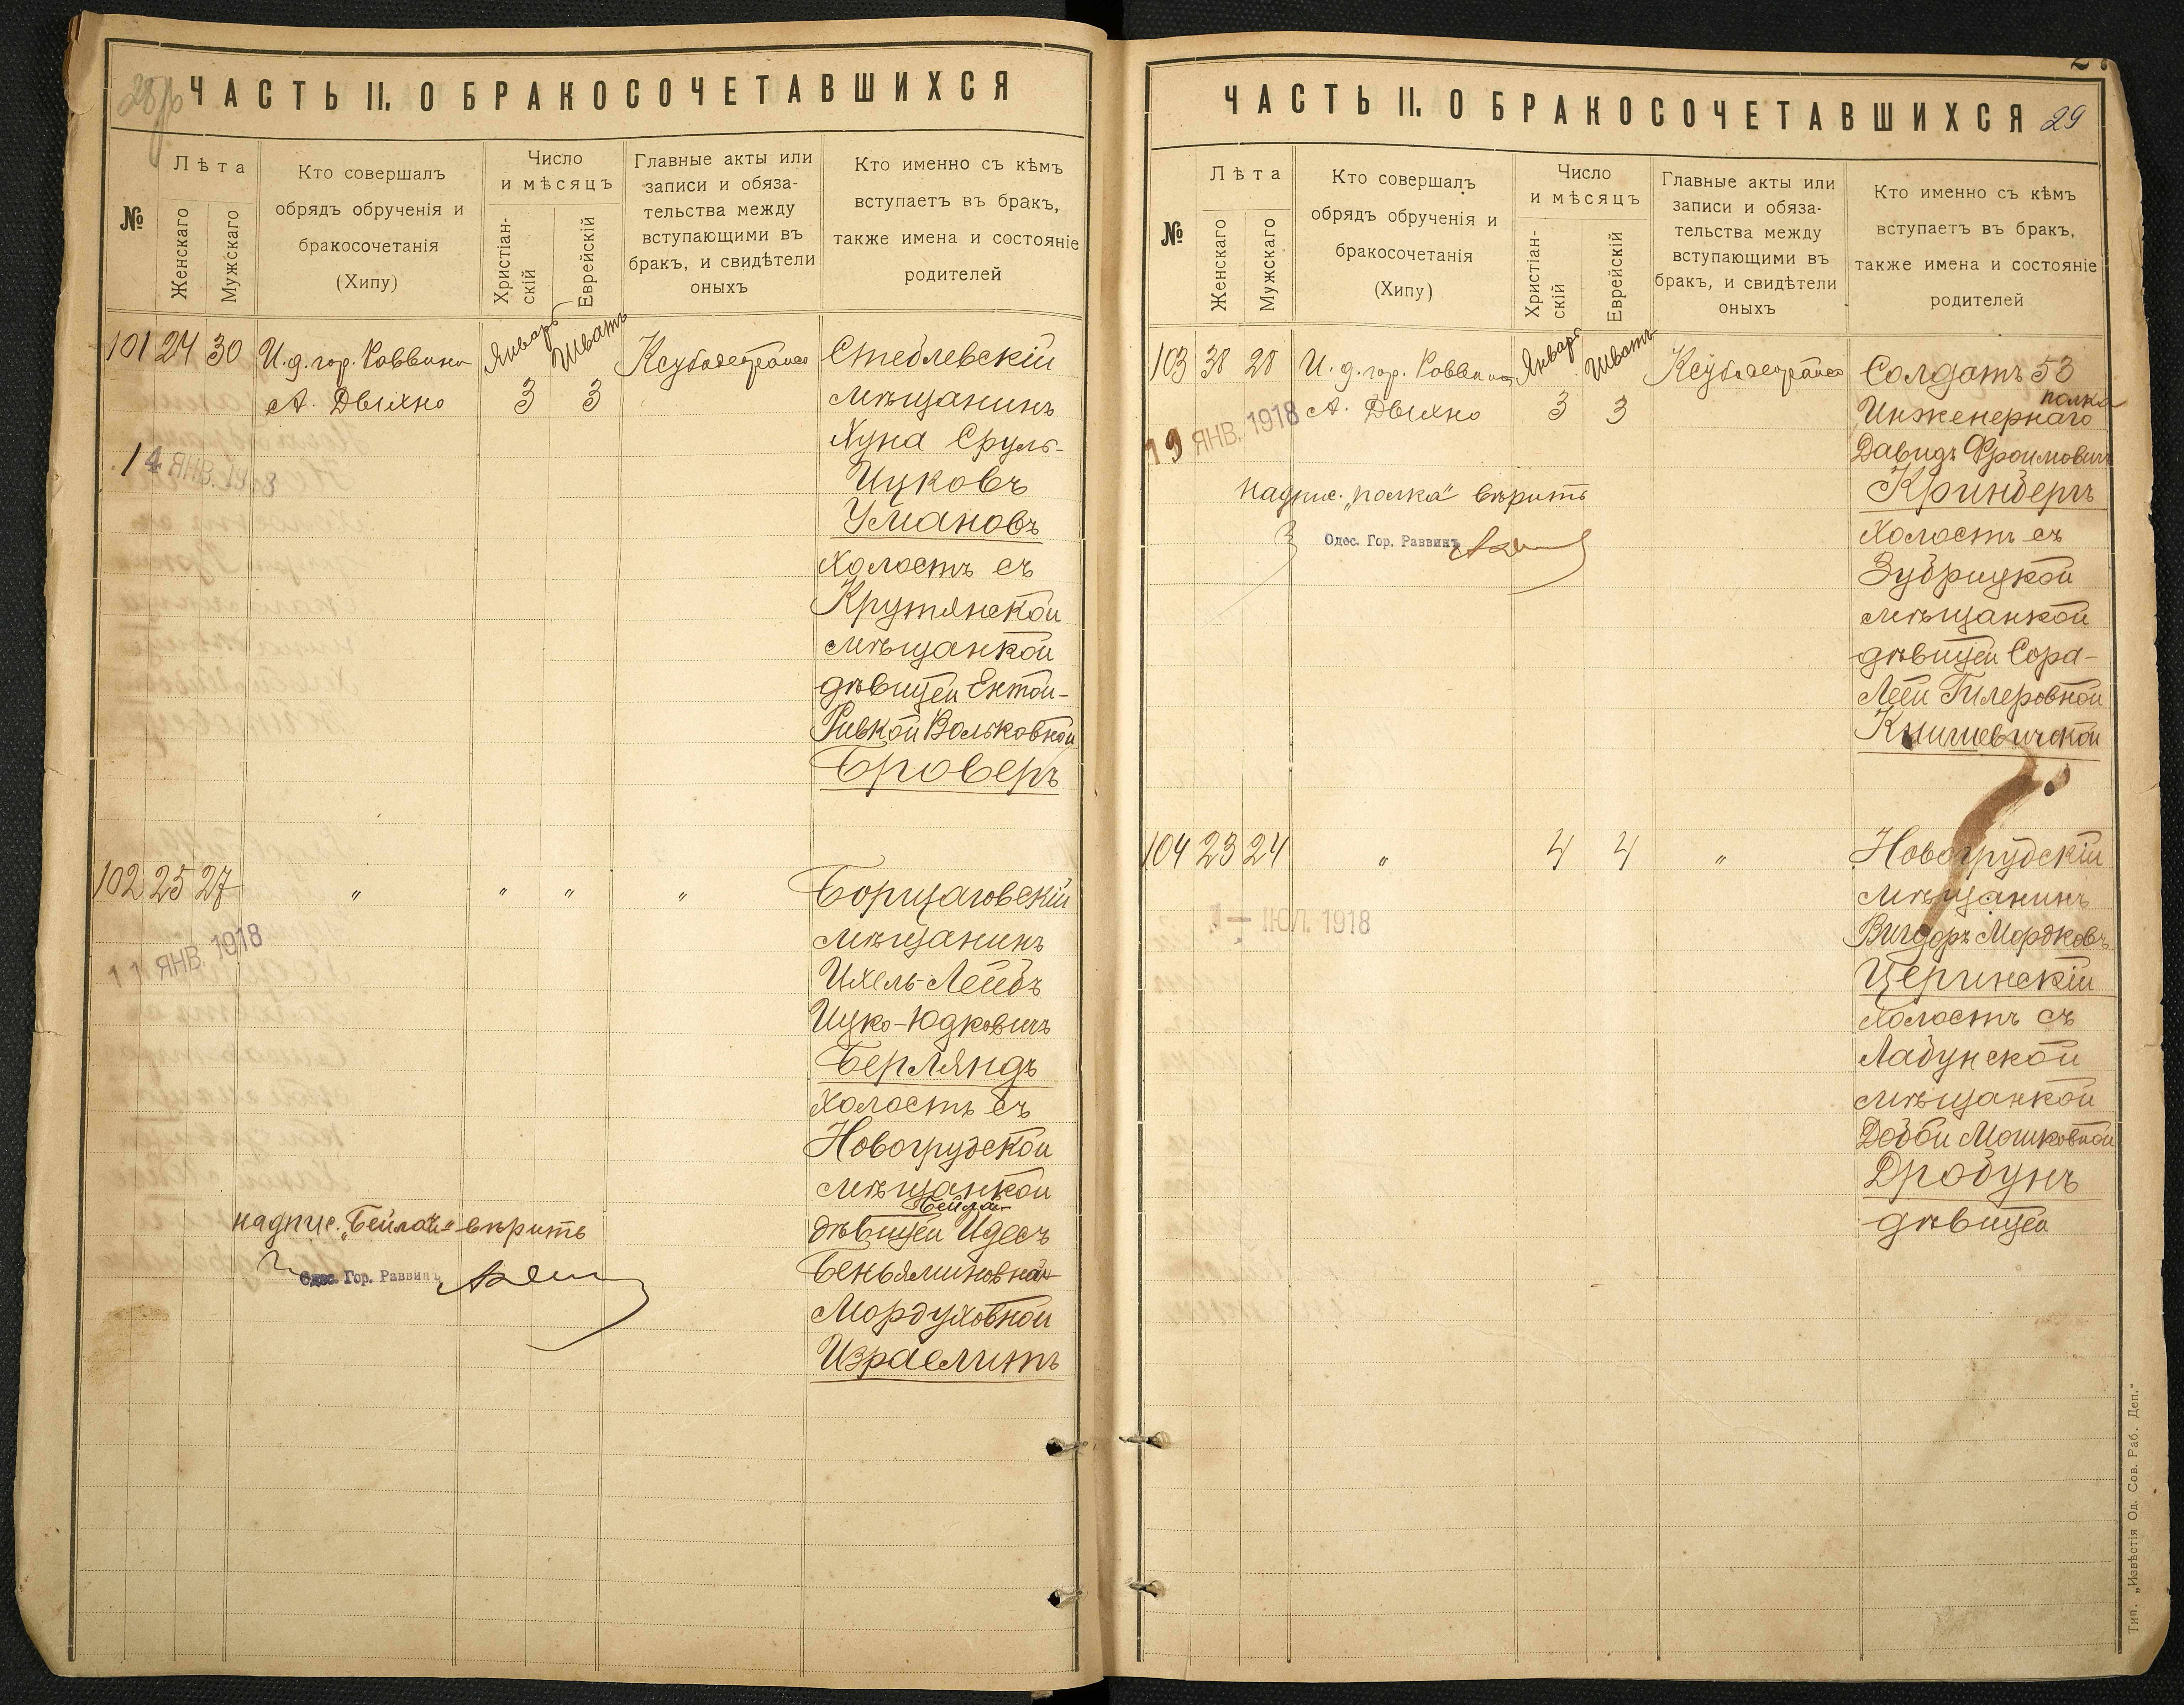 28 об
ЧАСТЬ II. О БРАКОСОЧЕТАВШИХСЯ
№
Лѣта
Женскаго
Мужскаго
Кто совершалъ
обрядъ обрученія и
бракосочетанія
(Хипу)
Число
и мѣсяцъ
Христіан-
скій
Еврейскій
Главные акты или
записи и обяза-
тельства между
вступающими въ
бракъ, и свидѣтели
оныхъ
Кто именно съ кѣмъ
вступаетъ въ бракъ,
также имена и состояніе
родителей
101 24 30 И. д. гор. Раввина Январь Шватъ
А. Двихно 3 3
14 ЯНВ. 1918
Стеблевскій
мѣщанинъ
Нуна Сруль-
Ицковъ
Умановъ
холостъ съ
Крутянской
мѣщанкой
дѣвицей Ентой-
Ривкой Вольковной
Броверъ
102 25 27 " " " "
11 ЯНВ. 1918
Борщаговскій
мѣщанинъ
Ихель-Лейбъ
Ицко-Юдковичъ
Берляндъ
холостъ съ
Новогрудской
мѣщанкой
Бейлой-
дѣвицей Идесъ
Беньяминовной-
Мордуховной
Израелитъ
надпис. „Бейлой-" вѣрить
Одес. Гор. Раввинъ
ЧАСТЬ II. О БРАКОСОЧЕТАВШИХСЯ
29
№
Лѣта
Женскаго
Мужскаго
Кто совершалъ
обрядъ обрученія и
бракосочетанія
(Хипу)
Число
и мѣсяцъ
Христіан-
скій
Еврейскій
Главные акты или
записи и обяза-
тельства между
вступающими въ
бракъ, и свидѣтели
оныхъ
Кто именно съ кѣмъ
вступаетъ въ бракъ,
также имена и состояніе
родителей
103 38 28 И. д. гор. Раввина Январь Шватъ
А. Двихно 3 3
19 ЯНВ. 1918
надпис. „полка" вѣрить
Одес. Гор. Раввинъ
Солдатъ 53
полка
Инженернаго
Давидъ Фроимовичъ
Кринбергъ
холостъ съ
Зубрицкой
мѣщанкой
дѣвицей Сора-
Леей Гилеровной
Кишиевичской
104 23 24 " 4 4 "
1 - ІЮЛ. 1918
Новогрудскій
мѣщанинъ
Вигдоръ Мордковъ
Церинскій
холостъ съ
Лабунской
мѣщанкой
Добой Мошковной
Дробунъ
дѣвицей
Тип. „Извѣстія Од. Сов. Раб. Деп."